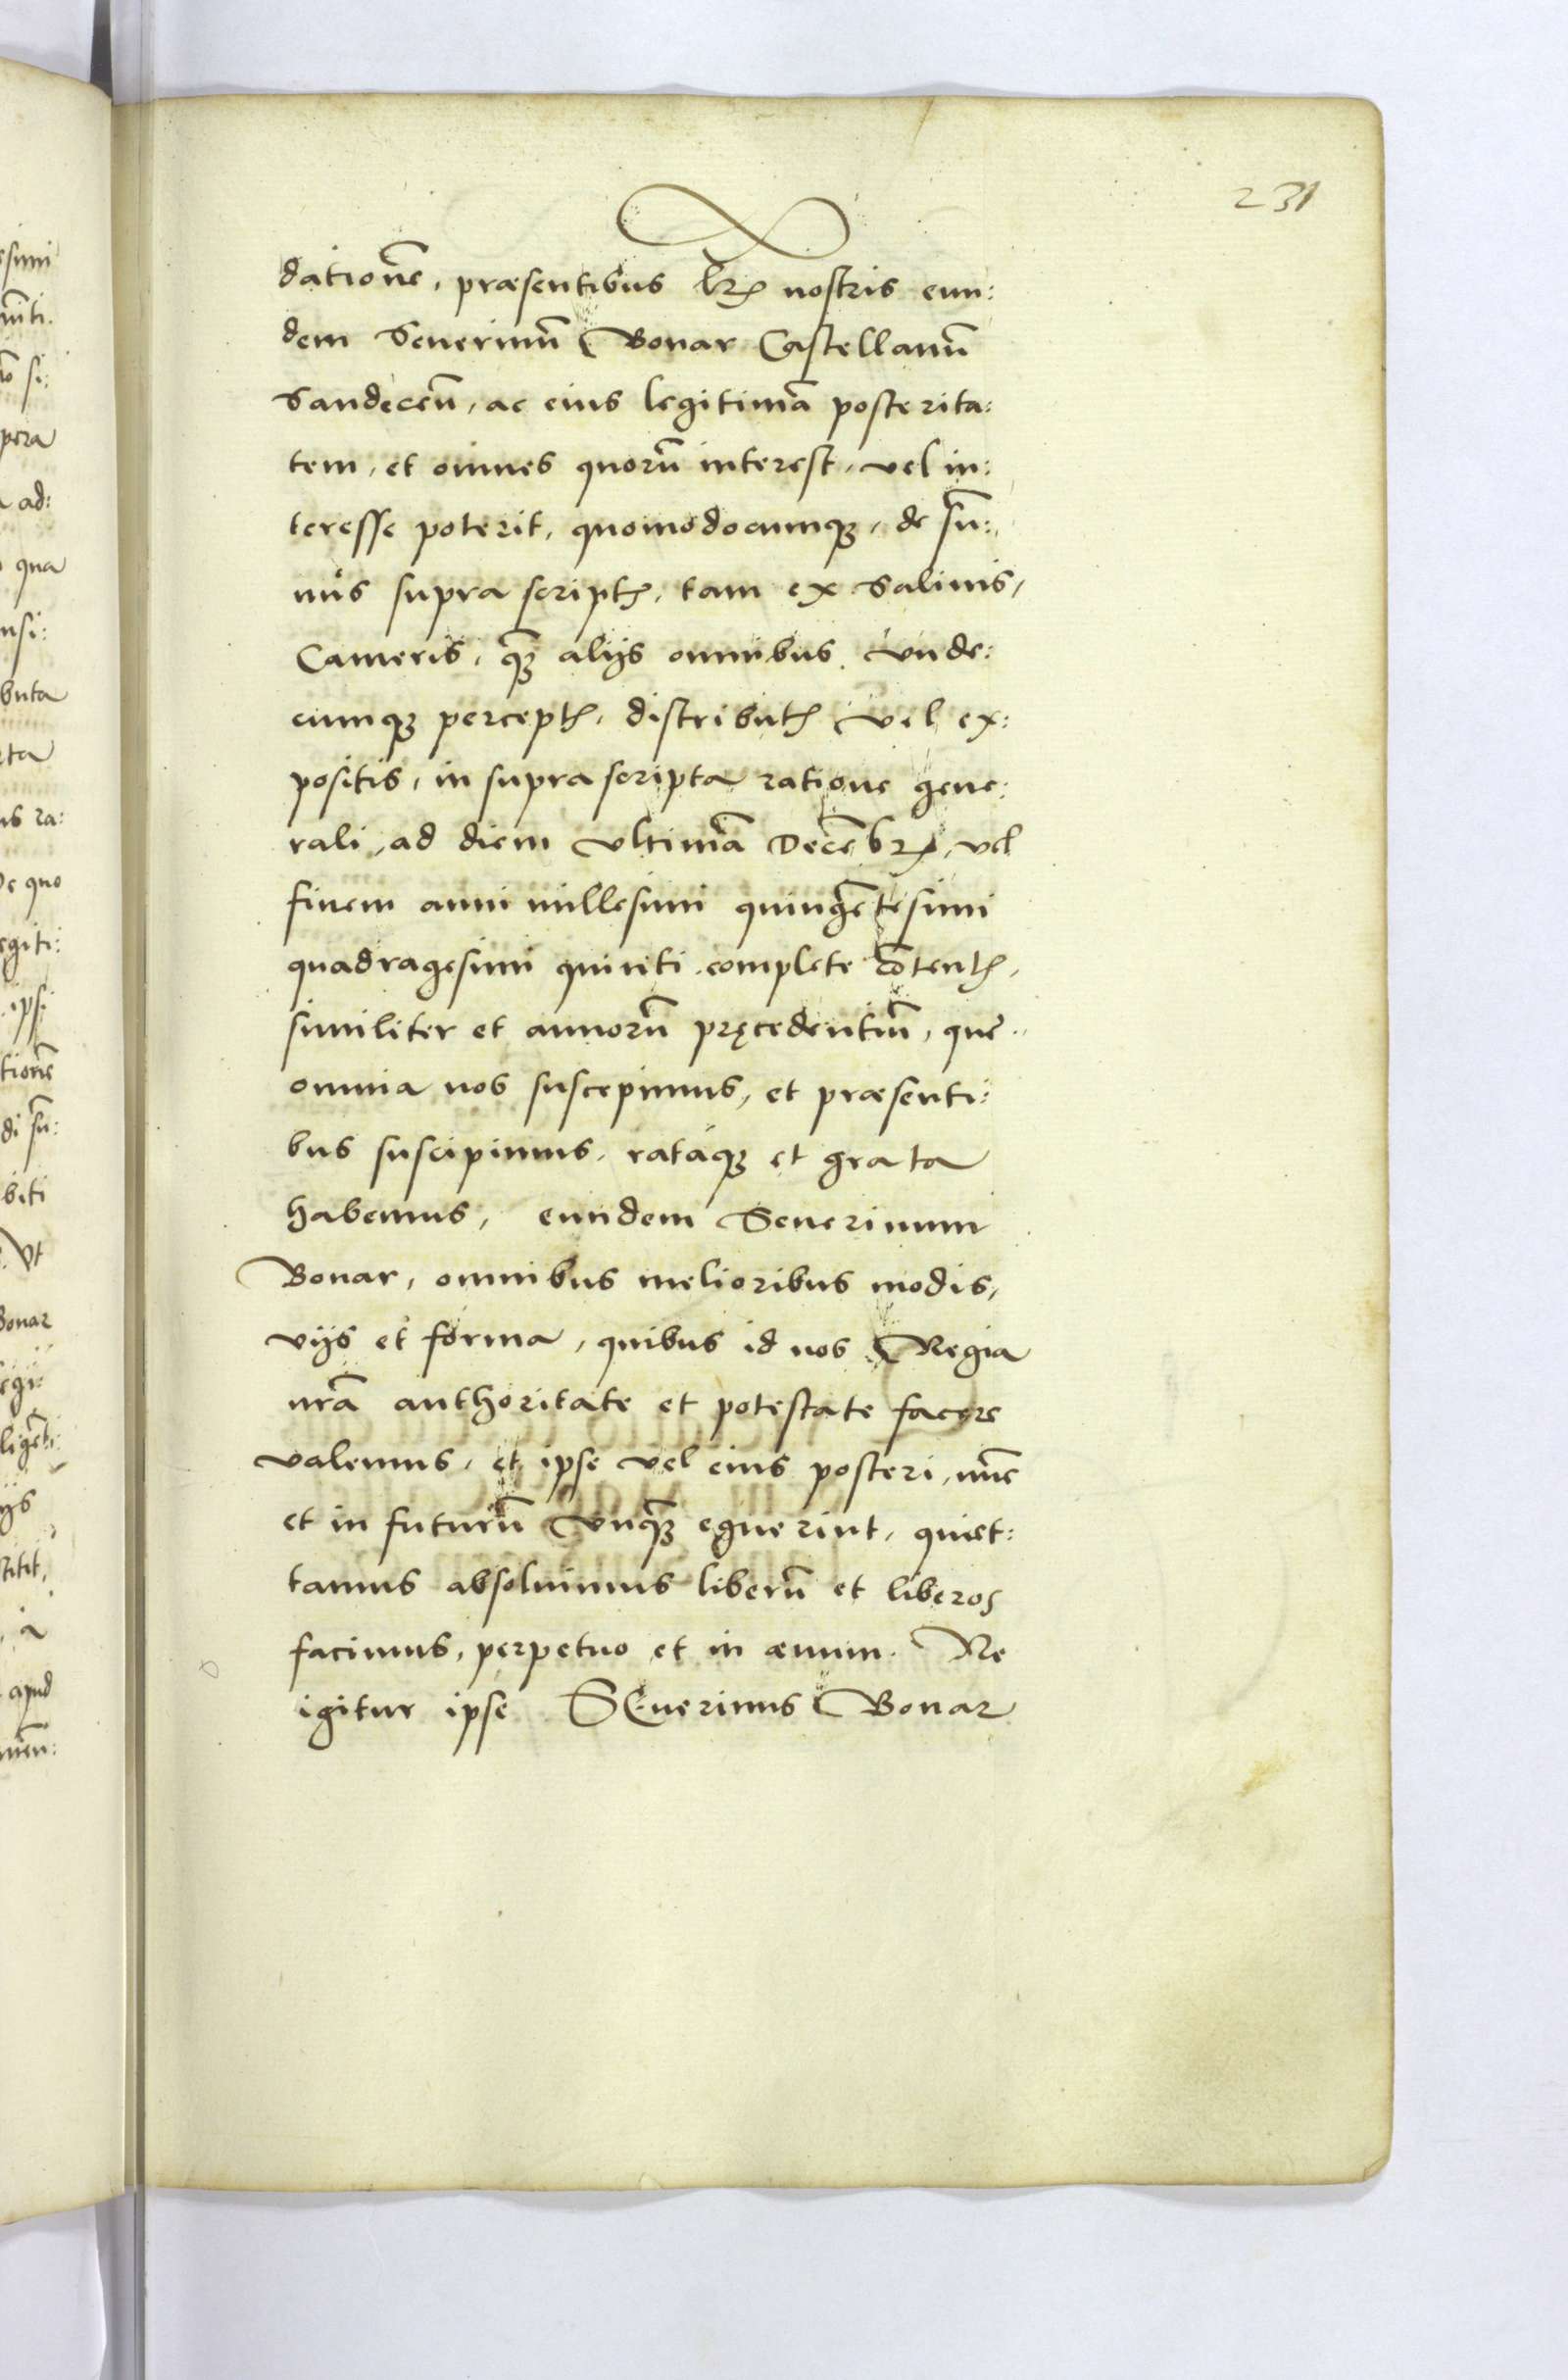 231
datione͂, præsentibus lrꝭ nostris eun:
dem Seuerinu͂ Bonar Castellanu͂
Sandeceñ, ac eius legitima͂ posterita:
tem, et omnes quoru͂ interest, vel in:
teresse poterit, quomodocumqꝫ, de sum̃:
mis supra scriptꝭ, tam ex Salinis,
Cameris, qꝫ̃ alijs omnibus vnde:
cumqꝫ perceptꝭ, distributꝭ vel ex:
positis, in supra scripta ratione gene:
rali, ad diem vltima͂ Dece͂brꝭ, vel
finem anni millesimi quinge͂tesimi
quadragesimi quinti complete co͂tentꝭ,
similiter et annoru͂ pręcedentiu͂, que
omnia nos suscepimus, et præsenti:
bus suscipimus, rataqꝫ et grata
habemus, eundem Seuerinum
Bonar, omnibus melioribus modis,
vijs et forma, quibus id nos Regia
nr̃a authoritate et potestate facere
valemus, et ipse vel eius posteri, nu͂c
et in futuru͂ vnqꝫ̃ eguerint, quiet:
tamus absoluimus liberu͂ et liberos
facimus, perpetuo et in æuum. Ne
igitur ipse SEuerinus Bonar